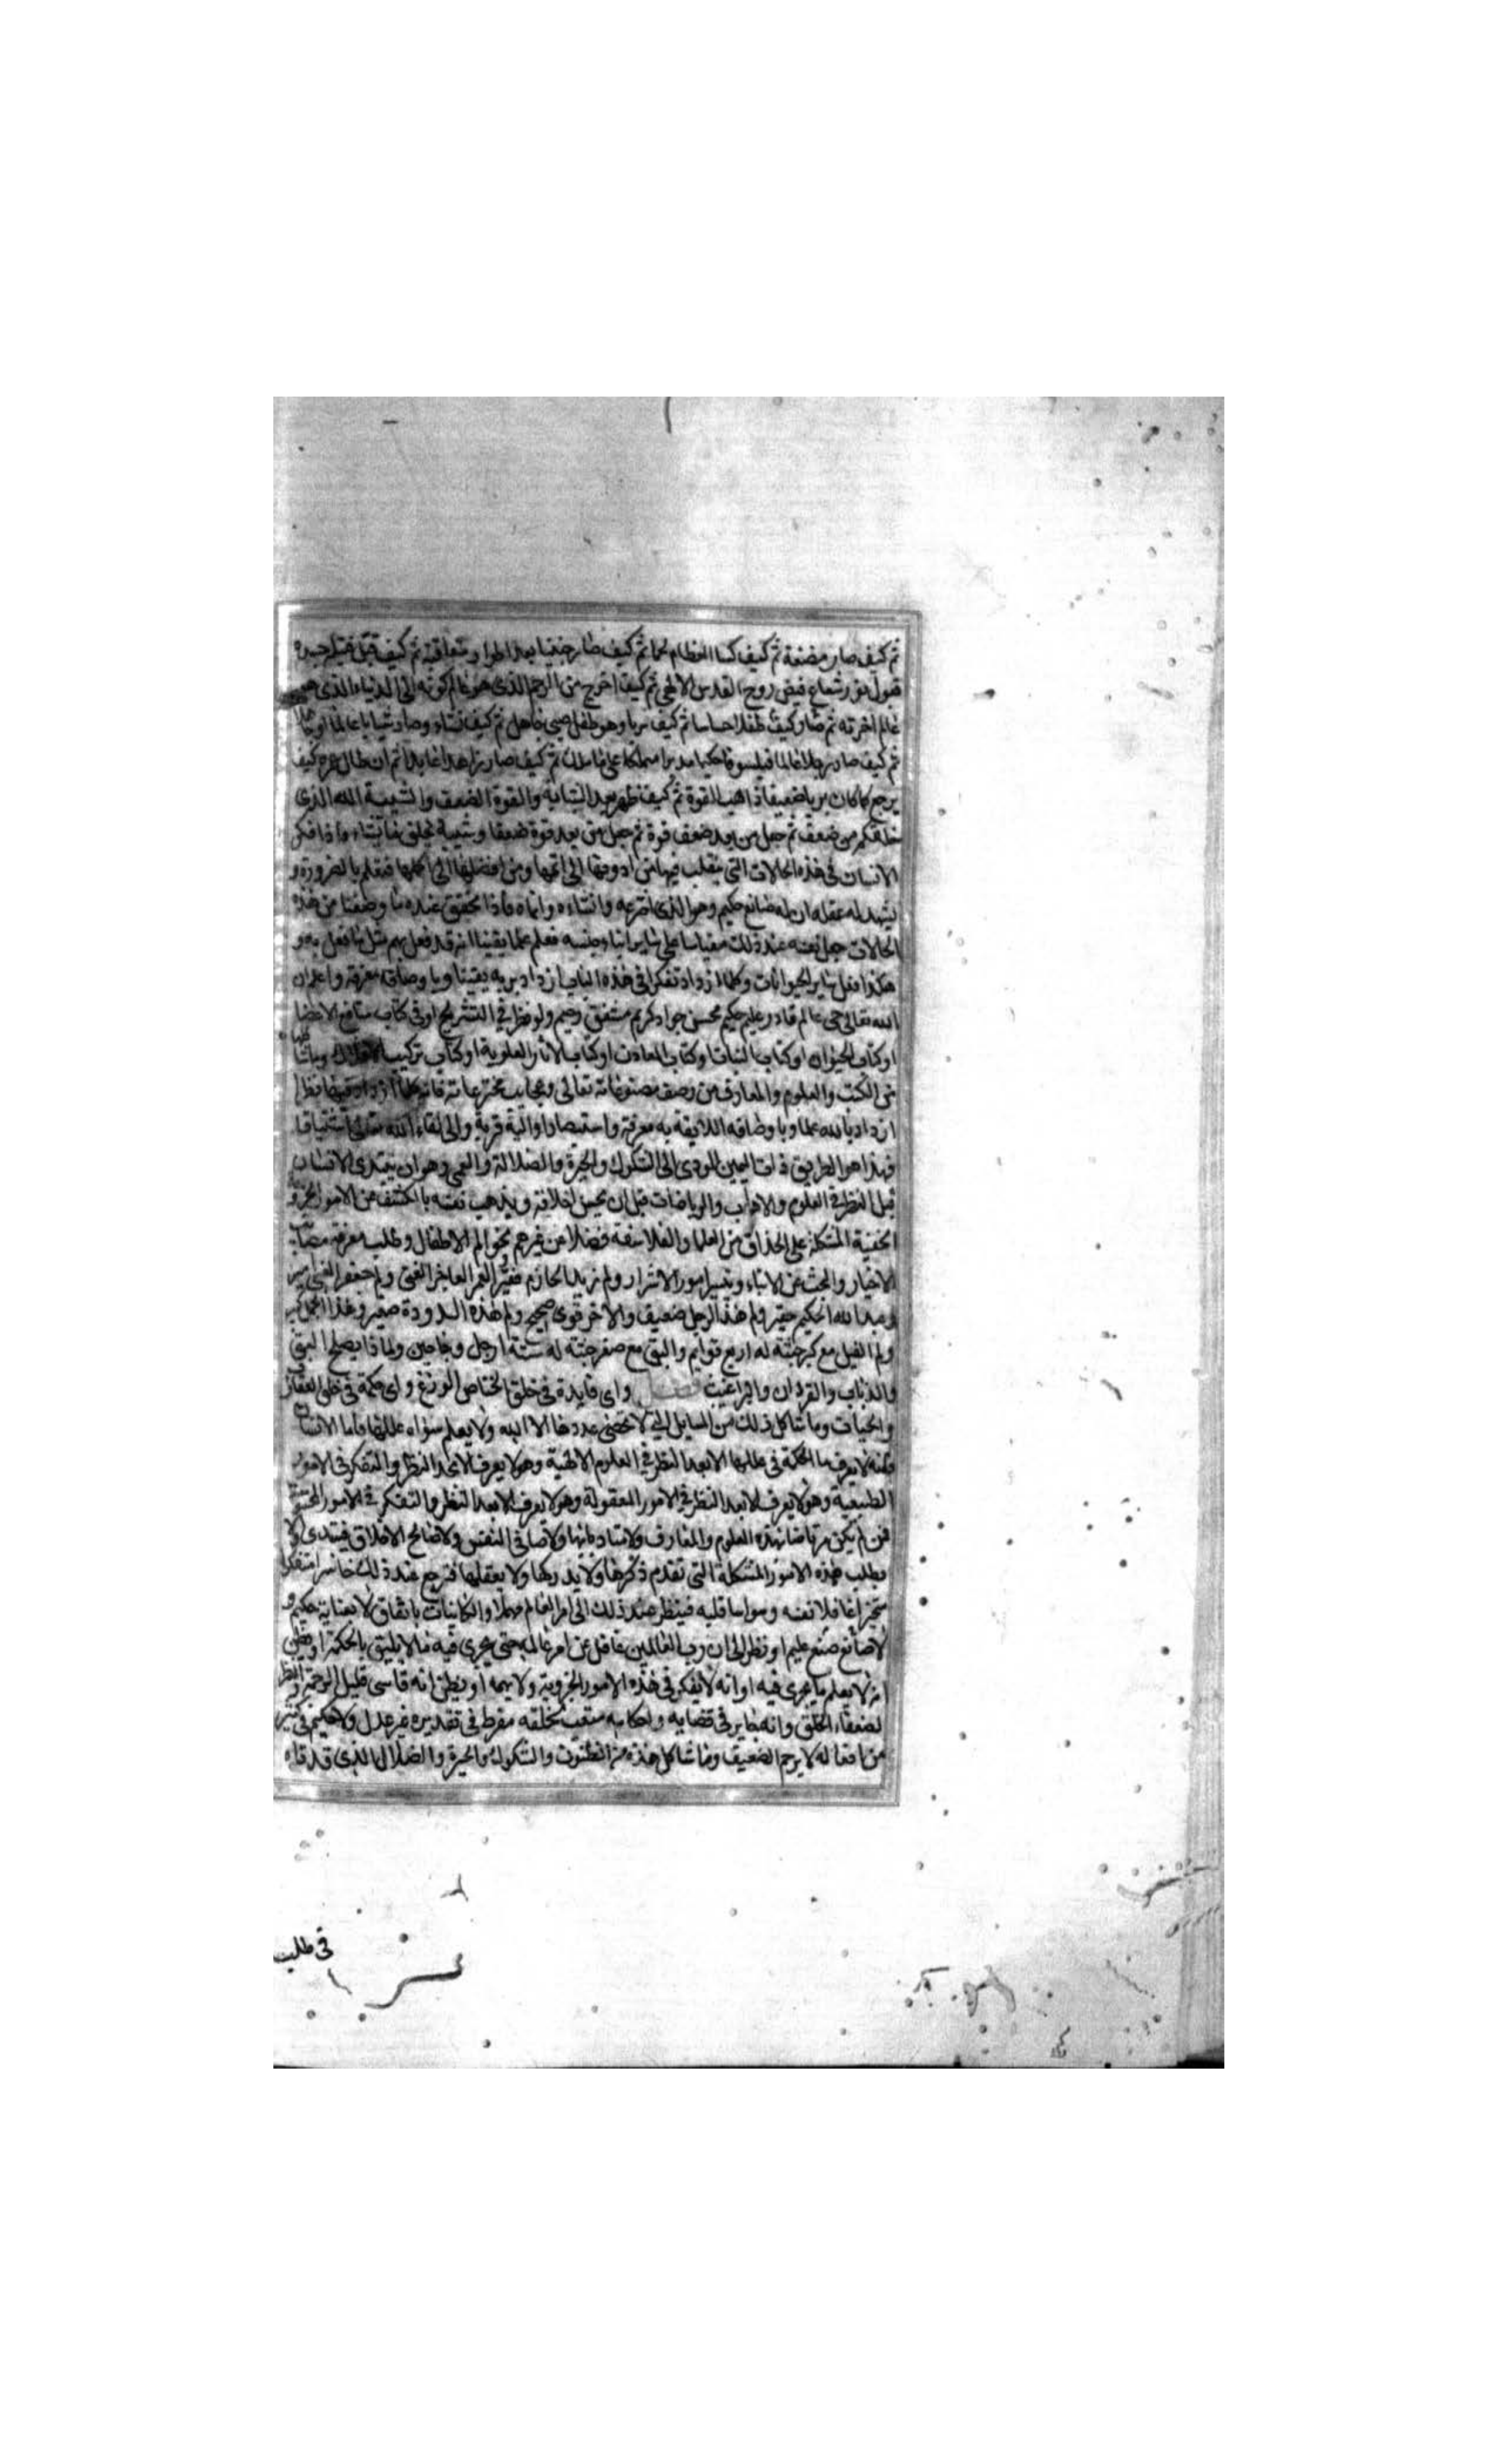 ثم كيف صار مضغة ثم كيف كسا العظام لحما ثم كيف صار جنينا بعد اطوار متعاقبة ثم كيف قبل جسده
قبول نور شعاع فيض روح القدس الالهي ثم كيف اخرج من الرحم الذي هو عالم كونه الى الدنيا الذي هو
عالم اخرته ثم صار كيف طفلا حساسا ثم كيف تربا وهو طفل صبي جاهل ثم كيف نشاء وصار شابا عالما او جاهلا
ثم كيف صار رجلا عالما فيلسوفا حكيما مدبرا متملكا على ثم كيف صار زاهدا عابدا ثم ان طال عمره كيف
يرجع كما كان تربا ضعيفا ذاهب القوة ثم كيف ظهر بعد الشبابة والقوة الضعف والشيبة الله الذي
خلقكم من ضعف ثم جعل من بعد ضعف قوة ثم جعل من بعد قوة ضعفا وشيبة يخلق ما يشاء واذا فكر
الانسان في هذه الحالات التي ينقلب فيها من ادونها الى اتمها ومن افضلها الى اكملها فيعلم بالضرورة و
يشهد له عقله ان له صانع حكيم وهو الذي اخترعه وانشاءه وانماه فاذا تحقق عنده ما وصفنا من هذه
الحالات جعل نفسه عند ذلك مقياسا على ساير ابناء جنسه فعلم علما يقينا انه قد فعل بهم مثل ما فعل به و
هكذا فعل ساير الحيوانات وكلما ازداد تفكرا في هذه الباب ازداد بربه يقينا وباوصافه معرفة واعلم ان
الله تعالى حي عالم قادر عليم حكيم محسن جواد كريم مشفق رحيم ولو نظر في التشريح او في كتاب منافع الاعضا
او كتاب الحيوان او كتاب النبات او كتاب المعادن او كتاب الاثار العلوية او كتاب تركيب الافلاك وما شاكلها
من الكتب والعلوم والمعارف من وصف مصنوعاته تعالى وعجايب مخترعاته فانه كلما ازداد فيها نظرا
ازداد بالله علما وباوصافه اللايقة به معرفة واستبصارا واليه قربة والى لقاء الله تعالى اشتياقا
فهذا هو الطريق ذات اليمين المودى الى الشكوك والحيرة والضلالة والعمي وهو ان يبتدى الانسان
قبل النظر في العلوم والاداب والرياضات قبل ان يحسن اخلاقه ويذهب نفسه بالكشف عن الامور الجزوية
الخفية المشكلة على الحذاق من العلما والفلاسفة فضلا من غيرهم نحو الم الاطفال وطلب معرفة مصايب
الاخيار والبحث عن الانباء وتيسير امور الاشرار ولم زيد الحازم فقير العمر العاجز الغنى ولم جعفر الغبى امير
وعبد الله الحكيم حقير ولم هذا الرجل ضعيف والاخر قوى صحيح ولم هذه الدودة صغير وهذا الجمل كبير
ولم الفيل مع كبر جثته له اربع قوايم والبق مع صغر جثته له ستة ارجل وجناحين ولماذا يصلح البق
والذباب والقردان والبراغيث فصل واى فايدة في خلق الوزغ واى حكمة في خلق العقارب
والحيات وما شاكل ذلك من المسايل التي لا تحصى عددها الا الله ولا يعلم سواه عللها فاما الانسان
فانه لا يعرف ما الحكمة في عللها الا بعد النظر في العلوم الالهية وهو لا يعرف الا بعد النظر والتفكر في الامور
الطبيعية وهو لا يعرف الا بعد النظر في الامور المعقولة وهو لا يعرف الا بعد النظر والتفكر في الامور المحسوسة
فمن لم يكن مرتاضا بهذه العلوم والمعارف ولا متادبا بها ولا صافى النفس ولا صالح الاخلاق فيبتدى اولا
بطلب هذه الامور المشكلة التي تقدم ذكرها ولا يدركها ولا يعقلها فيرجع عند ذلك خاسرا متفكرا
متحيرا غافلا نفسه وسواسا قلبه فينظر عند ذلك الى امر العالم مهملا والكاينات باتفاق لا بعناية حكيم و
لا صانع صنع عليم او نظر الى ان رب العالمين غافل عن امر عالمه حتى يجرى فيه ما لا يليق بالحكمة او يظن
انه لا يعلم ما يجرى فيه او انه لا يفكر في هذه الامور الجزوية ولا يهمه او يظن انه قاسى قليل الرحمة والنظر
لضعفاء الخلق وانه جاير في قضايه واحكامه متعب لخلقه مفرط في تقديره غير عدل ولا حكيم في كثير
من افعاله لا يرحم الضعيف وما شاكل هذه من الظنون والشكوك والحيرة والضلال الذي قد تاه
في طلب